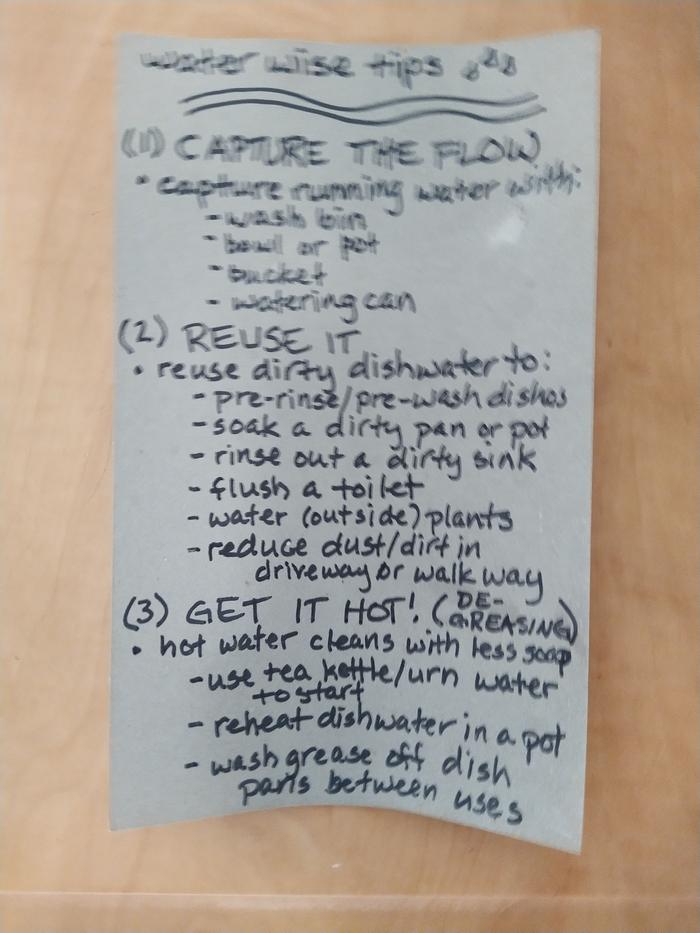 water wise tips
(1) CAPTURE THE FLOW
• capture running water with:
- wash bin
- bowl or pot
- bucket
- watering can
(2) REUSE IT
• reuse dirty dishwater to:
- pre-rinse/pre-wash dishes
- soak a dirty pan or pot
- rinse out a dirty sink
- flush a toilet
- water (outside) plants
- reduce dust/dirt in
driveway or walkway
(3) GET IT HOT! (DE-
GREASING)
• hot water cleans with less soap
- use tea kettle/urn water
to start
- reheat dishwater in a pot
- wash grease off dish
parts between uses